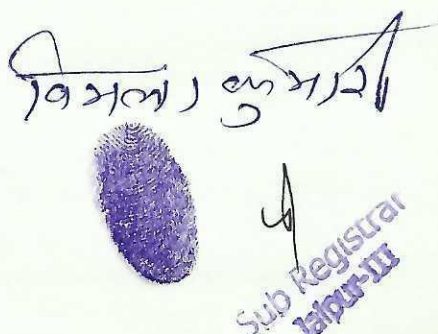 विमला कुमारी
Sub Registrar
Jaipur-III